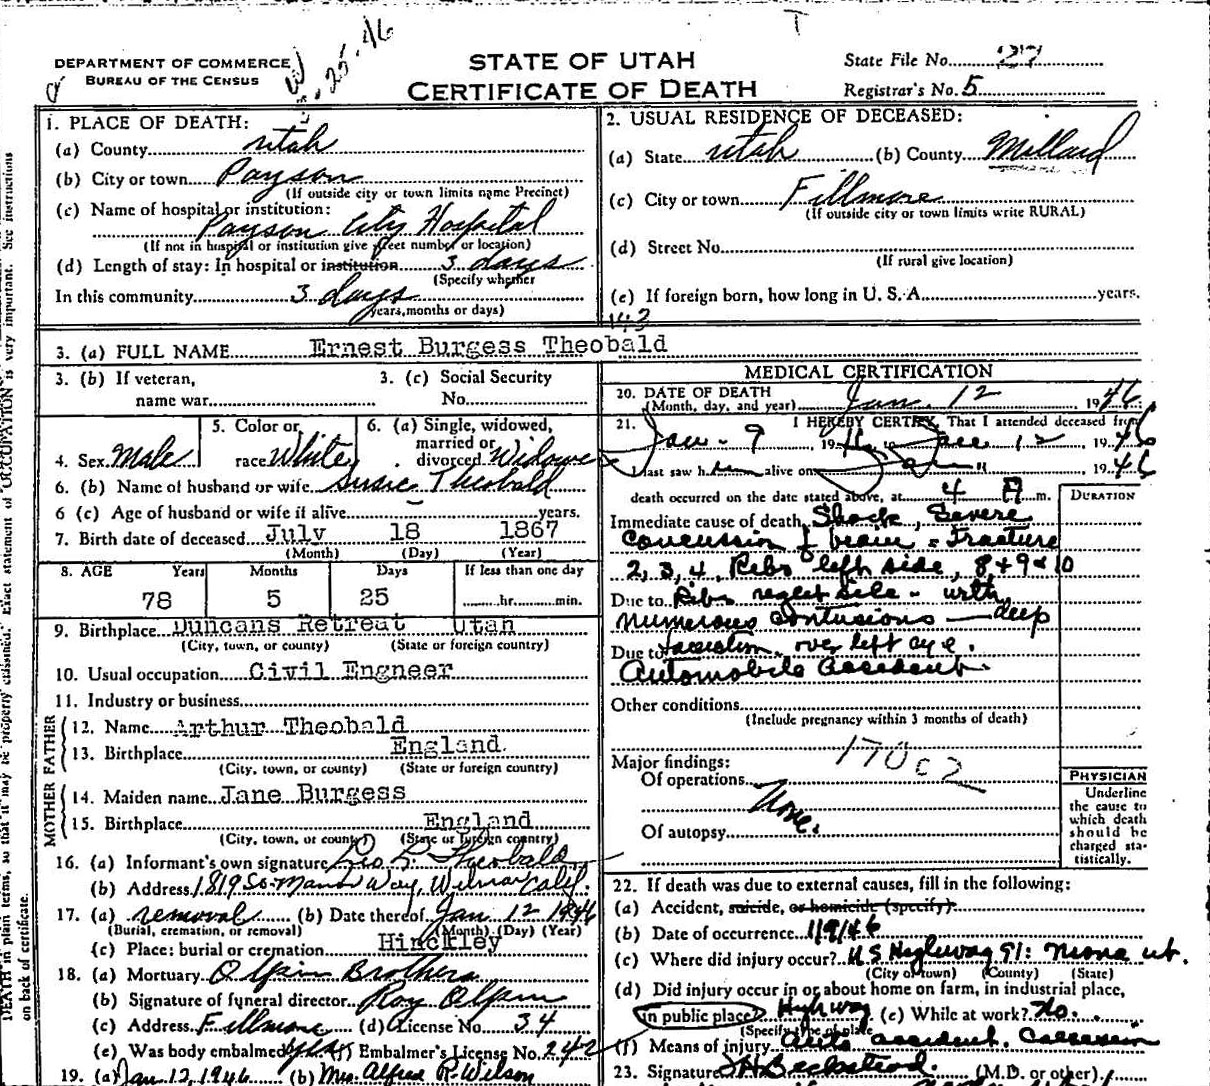 DEPARTMENT OF COMMERCE
BUREAU OF THE CENSUS
25-46
STATE OF UTAH
CERTIFICATE OF DEATH
State File No. 127
Registrar's No. 5
1. PLACE OF DEATH:
(a) County Utah
(b) City or town Payson
(If outside city or town limits name Precinct)
(c) Name of hospital or institution:
Payson City Hospital
(If not in hospital or institution give street number or location)
(d) Length of stay: In hospital or institution 3 days
(Specify whether
In this community 3 days
years, months or days)
2. USUAL RESIDENCE OF DECEASED:
(a) State Utah (b) County Millard
(c) City or town Fillmore
(If outside city or town limits write RURAL)
(d) Street No.
(If rural give location)
(e) If foreign born, how long in U. S. A. years.
143
3. (a) FULL NAME Ernest Burgess Theobald
3. (b) If veteran, name war
3. (c) Social Security No.
4. Sex Male
5. Color or race White
6. (a) Single, widowed, married or divorced Widowe
6. (b) Name of husband or wife Susie Theobald
6 (c) Age of husband or wife if alive years.
7. Birth date of deceased July 18 1867
(Month) (Day) (Year)
8. AGE Years Months Days If less than one day
78 5 25 hr. min.
9. Birthplace Duncans Retreat Utah
(City, town, or county) (State or foreign country)
10. Usual occupation Civil Engneer
11. Industry or business
FATHER
12. Name Arthur Theobald
13. Birthplace England.
(City, town, or county) (State or foreign country)
MOTHER
14. Maiden name Jane Burgess
15. Birthplace England
(City, town, or county) (State or foreign country)
16. (a) Informant's own signature Leo L. Theobald
(b) Address 1819 So. Way, Calif.
17. (a) removal (b) Date thereof Jan 12 1946
(Burial, cremation, or removal) (Month) (Day) (Year)
(c) Place: burial or cremation Hinckley
18. (a) Mortuary Olpin Brothers
(b) Signature of funeral director Roy Olpin
(c) Address Fillmore (d) License No. 34
(e) Was body embalmed yes (f) Embalmer's License No. 242
19. (a) Jan 12, 1946 (b) Mrs. Alfred R. Wilson
MEDICAL CERTIFICATION
20. DATE OF DEATH
(Month, day, and year) Jan. 12, 1946
21. I HEREBY CERTIFY, That I attended deceased from
Jan - 9, 1946 to Jan 12, 1946
I last saw him alive on Jan 11 1946
death occurred on the date stated above, at 4 A m.
DURATION
Immediate cause of death Shock, Severe
concussion of brain - Fracture
2, 3, 4, Ribs left side, 8 + 9 + 10
Due to Ribs right side - with
numerous contusions - deep
Due to laceration over left eye.
Automobile accident.
Other conditions
(Include pregnancy within 3 months of death)
170c2
Major findings:
Of operations
None.
Of autopsy
PHYSICIAN
Underline
the cause to
which death
should be
charged sta-
tistically.
22. If death was due to external causes, fill in the following:
(a) Accident, suicide, or homicide (specify)
(b) Date of occurrence 1/9/46
(c) Where did injury occur? U.S Highway 91: Mona ut.
(City or town) (County) (State)
(d) Did injury occur in or about home on farm, in industrial place,
in public place Highway (e) While at work? no.
(Specify type of place)
(f) Means of injury auto accident. Collission
23. Signature Beckstead. (M.D. or other)
DEATH in plain terms, so that it may be properly classified. Exact statement of OCCUPATION is very important. See instructions
on back of certificate.